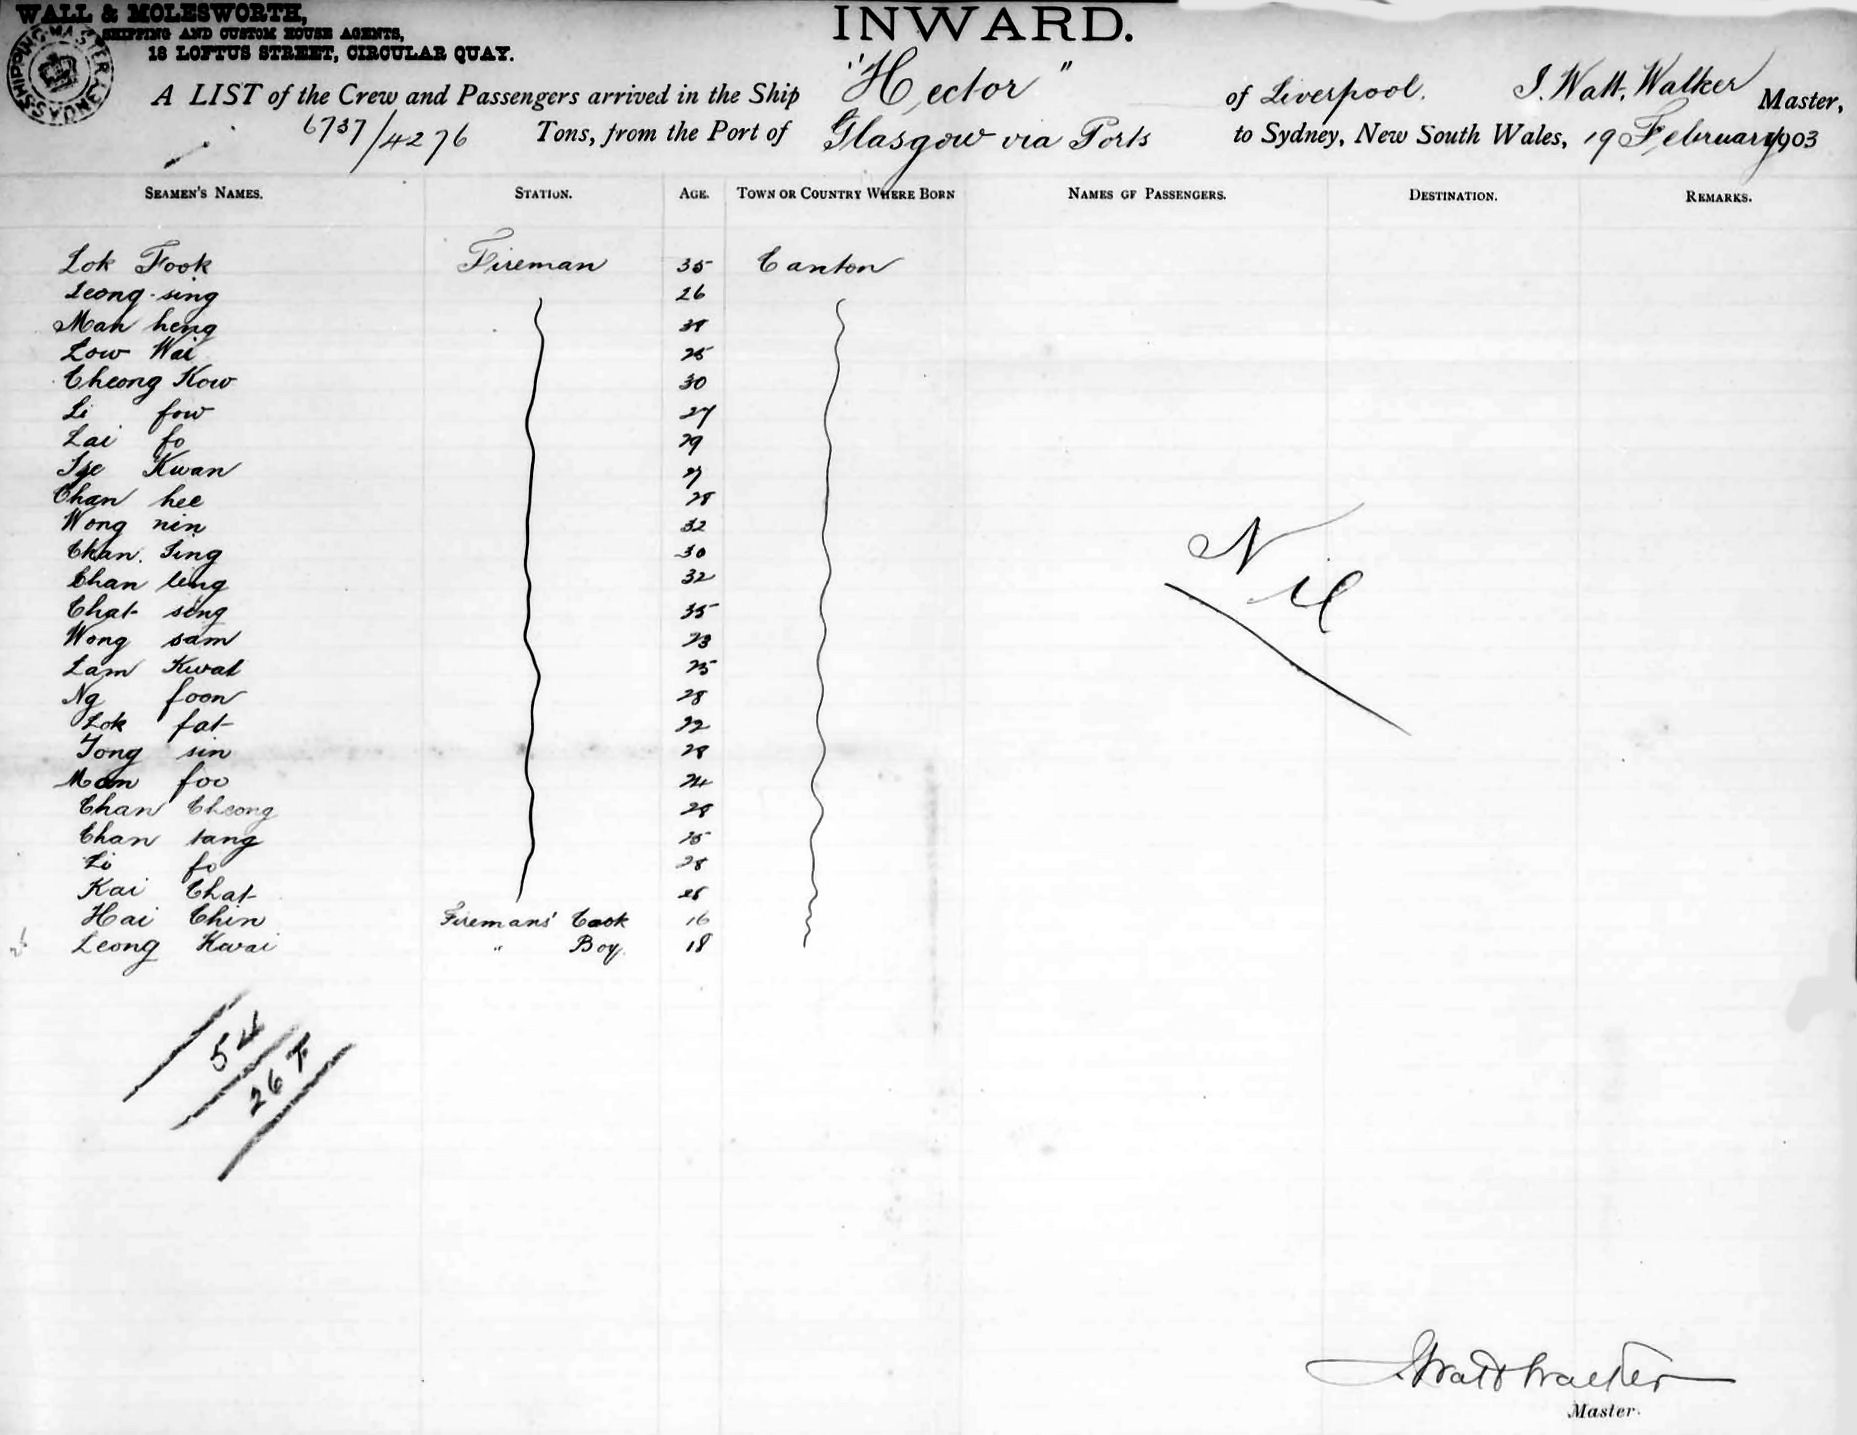 WALL & MOLESWORTH,
SHIPPING AND CUSTOM HOUSE AGENTS,
18 LOFTUS STREET, CIRCULAR QUAY.
INWARD.
A LIST of the Crew and Passengers arrived in the Ship "Hector" of Liverpool. J. Watt. Walker Master,
6737/4276 Tons, from the Port of Glasgow via Ports to Sydney, New South Wales, 19 February 1903
SEAMEN'S NAMES. STATION. AGE. TOWN OR COUNTRY WHERE BORN NAMES OF PASSENGERS. DESTINATION. REMARKS.
Lok Fook Fireman 35 Canton
Leong sing 26
Mah heng
Low Wai 25
Cheong Kow 30
Li fow 27
Lai fo 29
Kwan 27
Chan hee 28
Wong nin 32
Chan. Sing 30
Chan leng 32
Chat seng 35
Wong sam 23
Lam Kwat 25
Ng foon 28
Lok fat 22
Tong sin 28
Man foo 24
Chan Cheong 28
Chan tang 25
Li fo 28
Kai Chat
Hai Chin Firemans' Cook 16
Leong Kwai " Boy 18
Nil
54
26 F
J Watt Walker
Master.